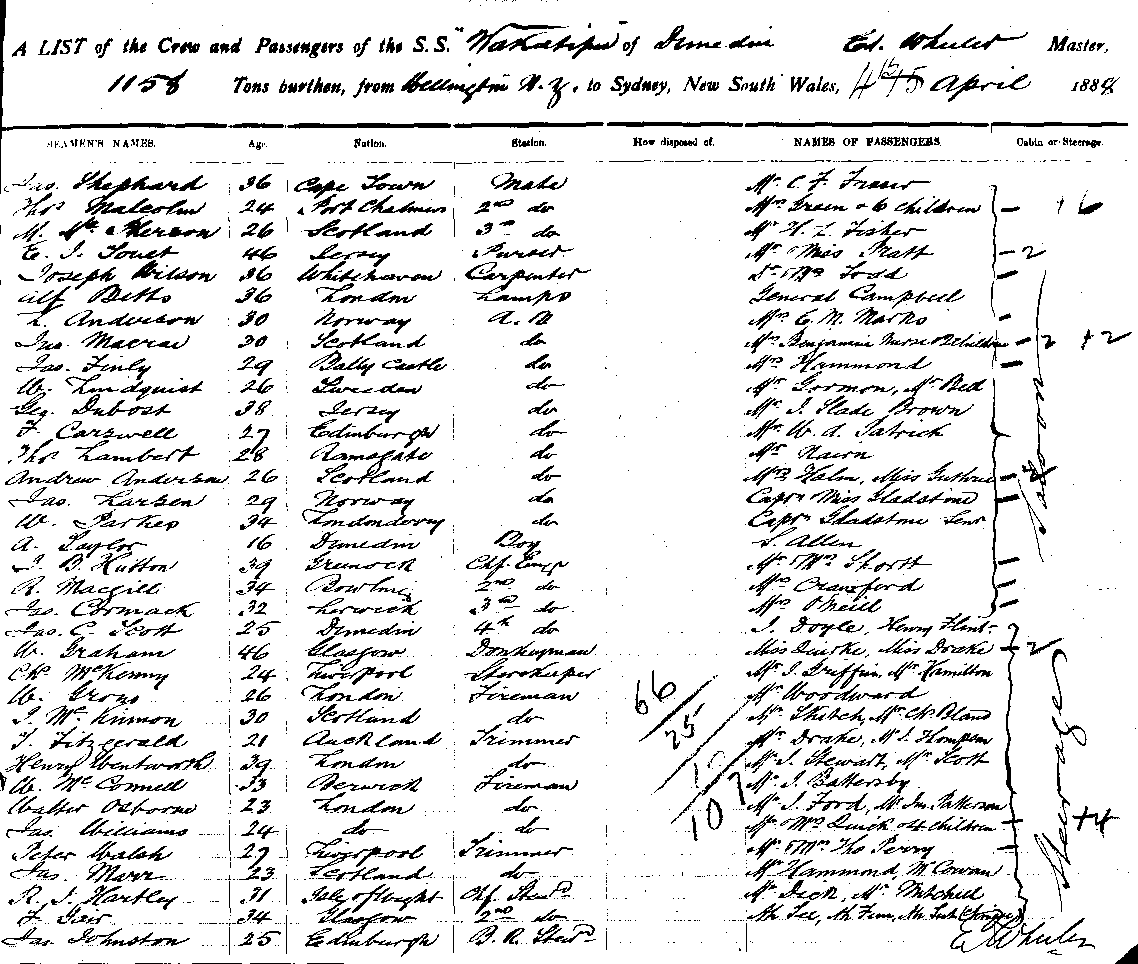 A LIST of the Crew and Passengers of the S.S. "Wakatipu" of Dunedin Ed. Wheeler Master,
1158 Tons burthen, from Wellington N. Z. to Sydney, New South Wales, 4th April 188
SEAMEN'S NAMES. Age. Nation. Station. How disposed of. NAMES OF PASSENGERS. Cabin or Steerage.
Jas. Shephard 36 Cape Town Mate Mr C. F. Fraser
Thos Malcolm 24 Port Chalmers 2nd do Mrs Green & 6 Children 6
M. Mc Pherson 26 Scotland 3rd do Mr H. L. Fisher
E. J. Touet 46 Jersey Purser Mr Miss Pratt 2
Joseph Wilson 36 Whitehaven Carpenter Dr Mrs Todd
Alf Betts 36 London Lamps General Campbell
L. Anderson 30 Norway A. B Mrs E. M. Marks
Jno. Macrae 30 Scotland do Mrs Benjamin Nurse & 2 Children 2 +2
Jas. Finly 29 Bally Castle do Mrs Hammond
W. Lindquist 26 Sweden do Mr Gormon, Mr Bell
Geo. Dubost 38 Jersey do Mr J. Slade Brown
F. Carswell 27 Edinburgh do Mr W. A. Patrick
Thos Lambert 28 Ramsgate do Mr Nairn
Andrew Anderson 26 Scotland do Mrs Halm, Miss Guthrie
Jas. Larsen 29 Norway do Captn Miss Gladstone
W. Parkes 34 Londonderry do Captn Gladstone Senr
A. Taylor 16 Dunedin Boy S. Allen
J. B. Hutton 39 Greenock Chf. Engr Mr Mrs Shortt
R. Macgill 34 Bowling 2nd do Mrs Crawford
Jas. Cormack 32 Lerwick 3rd do Mrs O'Neill
Jas. C. Scott 25 Dunedin 4th do J. Doyle, Henry Flint
W. Graham 46 Glasgow Donkeyman Miss Miss Drake 2
Chs McKenny 24 Liverpool Storekeeper Mr J. Griffin, Mr Hamilton
W. 26 London Fireman Mr Woodward
J. Mc Kinnon 30 Scotland do Mr Sketch, Mr Ch. Bland
T. Fitzgerald 21 Auckland Trimmer Mr Drake, Mr J. Thompson
Henry Wentworth 39 London do Mr J. Stewart, Mr Scott
W. Mc Connell 33 Berwick Fireman Mr J. Battersby
Walter Osborne 23 London do Mr J. Ford, Mr Jno. Paterson
Jas. Williams 24 do do Mr Mrs Quick & 4 Children +4
Peter Walsh 27 Liverpool Trimmer Mr Mrs Tho Perry
Jas. Marr 23 Scotland do Mr Hammond, McCowan
R. J. Hartley 31 Isle of Wight Chf. Stewd Mr Dick, Mr Mitchell
F. Gair 34 Glasgow 2nd do Ah Lee, Ah Fun,
Jas Johnston 25 Edinburgh B. R. Stewd
Saloon
Steerage
66
25
107
Ed Wheeler